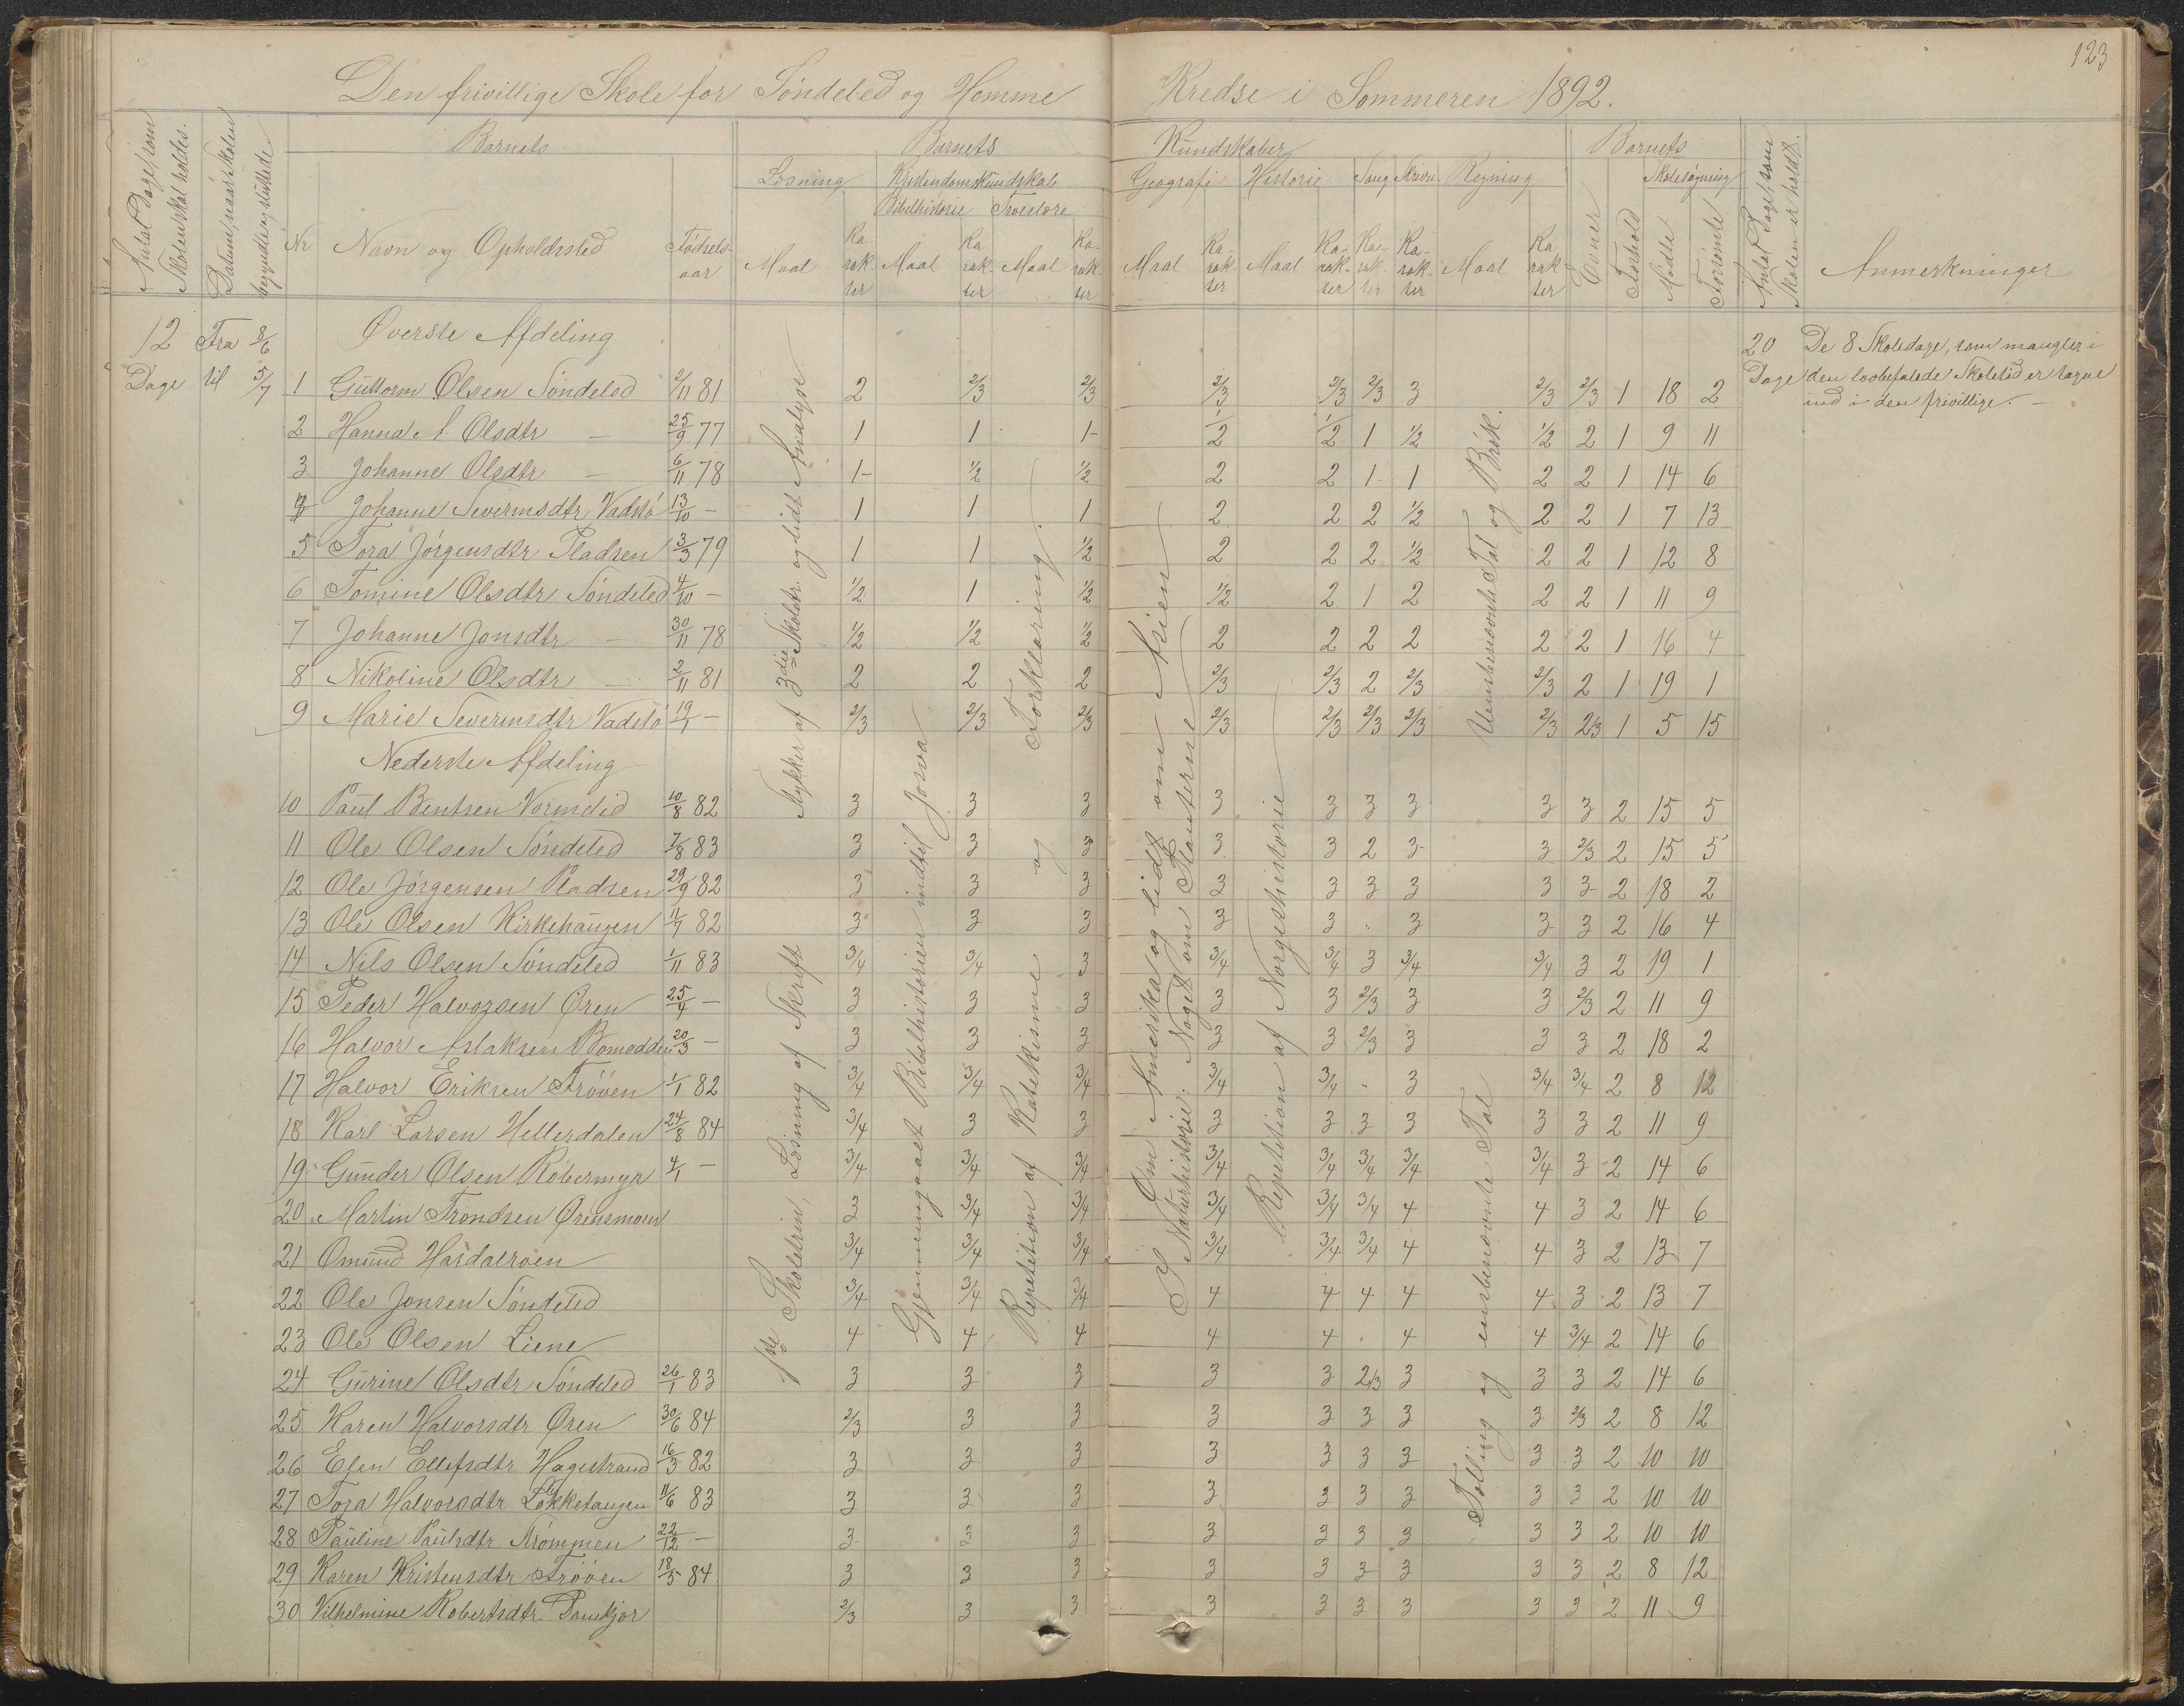 123
Den frivillige Skole for Söndeled og Homme Kredse i Sommeren 1892.
Antal Dage, som Skolen skal holdes.
Datum, naar Skolen begyndte og sluttede
Barnets
Nr
Navn og Opholdssted
Fødsels-aar
Barnets Kundskaber
Læsning
Maal
Karakter
Kristendomskundskab
Bibelhistorie
Maal
Karakter
Troeslære
Maal
Karakter
Geografi
Maal
Karakter
Historie
Maal
Karakter
Sang
Karakter
Skrivn.
Karakter
Regning
Maal
Karakter
Barnets
Evner
Forhold
Skolesøgning
Mødte
Forsömte
Antal Dage, som Skolen er holdt.
Anmerkninger
12 Dage
Fra 8/6 til 5/7
20 Dage
De 8 Skoledage, som mangler i
den lovbefalede Skoletid er tagne
ind i den frivillige. –
Øverste Afdeling
1 Guttorm Olsen Söndeled 2/11 81 2 2/3 2/3 2/3 2/3 2/3 3 2/3 2/3 1 18 2
2 Hanna A. Olsdtr – 25/9 77 1 1 1- 1/2 1/2 1 1/2 1/2 2 1 9 11
3 Johanne Olsdtr – 6/11 78 1- 1/2 1/2 2 2 1- 1 2 2 1 14 6
4 Johanne Severinsdtr Vadstö 13/10 – 1 1 1 2 2 2 1/2 2 2 1 7 13
5 Tora Jörgensdtr Pladsen 3/3 79 1 1 1/2 2 2 2 1/2 2 2 1 12 8
6 Tomine Olsdtr Söndeled 4/10 – 1/2 1 1/2 1/2 2 1 2 2 2 1 11 9
7 Johanne Jonsdtr – 30/11 78 1/2 1/2 1/2 2 2 2 2 2 2 1 16 4
8 Nikoline Olsdtr – 2/11 81 2 2 2 2/3 2/3 2 2/3 2/3 2 1 19 1
9 Marie Severinsdtr Vadstö 19/1 – 2/3 2/3 2/3 2/3 2/3 2/3 2/3 2/3 2/3 1 5 15
Nederste Afdeling
10 Paul Bentsen Vormelid 10/8 82 3 3 3 3 3 3 3 3 3 2 15 5
11 Ole Olsen Söndeled 7/8 83 3 3 3 3 3 2 3- 3 2/3 2 15 5
12 Ole Jörgensen Pladsen 29/9 82 3 3 3 3 3 3 3 3 3 2 18 2
13 Ole Olsen Kirkehaugen 11/7 82 3 3 3 3 3 . 3 3 3 2 16 4
14 Nils Olsen Söndeled 1/11 83 3/4 3/4 3 3/4 3/4 3 3/4 3/4 3 2 19 1
15 Peder Halvorsen Øren 25/4 – 3 3 3 3 3 2/3 3 3 2/3 2 11 9
16 Halvor Aslaksen 20/3 – 3 3 3 3 3 2/3 3 3 3 2 18 2
17 Halvor Eriksen Tröoen 1/1 82 3/4 3/4 3/4 3/4 3/4 . 3 3/4 3/4 2 8 12
18 Karl Larsen Hellerdalen 24/8 84 3/4 3 3 3 3 3 3 3 3 2 11 9
19 Gunder Olsen Röbermyr 4/1 – 3/4 3/4 3/4 3/4 3/4 3/4 3/4 3/4 3 2 14 6
20 Martin Trondsen Ørensmoen 3 3/4 3/4 3/4 3/4 3/4 4 4 3 2 14 6
21 Omund Hardalroen 3/4 3/4 3/4 3/4 3/4 3/4 4 4 3 2 13 7
22 Ole Jonsen Söndeled 3/4 3/4 3/4 4 4 4 4 4 3 2 13 7
23 Ole Olsen Liene 4 4 4 4 4 . 4 4 3/4 2 14 6
24 Gurine Olsdtr Söndeled 26/1 83 3 3 3 3 3 2/3 3 3 3 2 14 6
25 Karen Halvorsdtr Øren 30/6 84 2/3 3 3 3 3 3 3 3 2/3 2 8 12
26 Elen Ellefsdtr Hagestrand 16/3 82 3 3 3 3 3 3 3 3 3 2 10 10
27 Tora Halvorsdtr Lökketangen 11/6 83 3 3 3 3 3 3 3 3 3 2 10 10
28 Pauline Paulsdtr Strömmen 22/12 – 3 3 3 3 3 3 3 3 3 2 10 10
29 Karen Kristensdtr Tröoen 18/5 84 3 3 3 3 3 3 3 3 3 2 8 12
30 Vilhelmine Robertsdtr 2/3 3 3 3 3 3 3 3 3 2 11 9
Stykker af 3die Skoletr. og lidt Analyse
1ste Skoletrin, Læsning af Skrift
Gjennemgaaet Bibelhistorien indtil Josva
Repetition af Katekisme og Forklaring
Om Amerika og lidt om Asien
I Naturhistorie: Noget om Planterne
Repetition af Norgeshistorie
Uensbenævnte Tal og Brök.
Tælling og ensbenævnte Tal